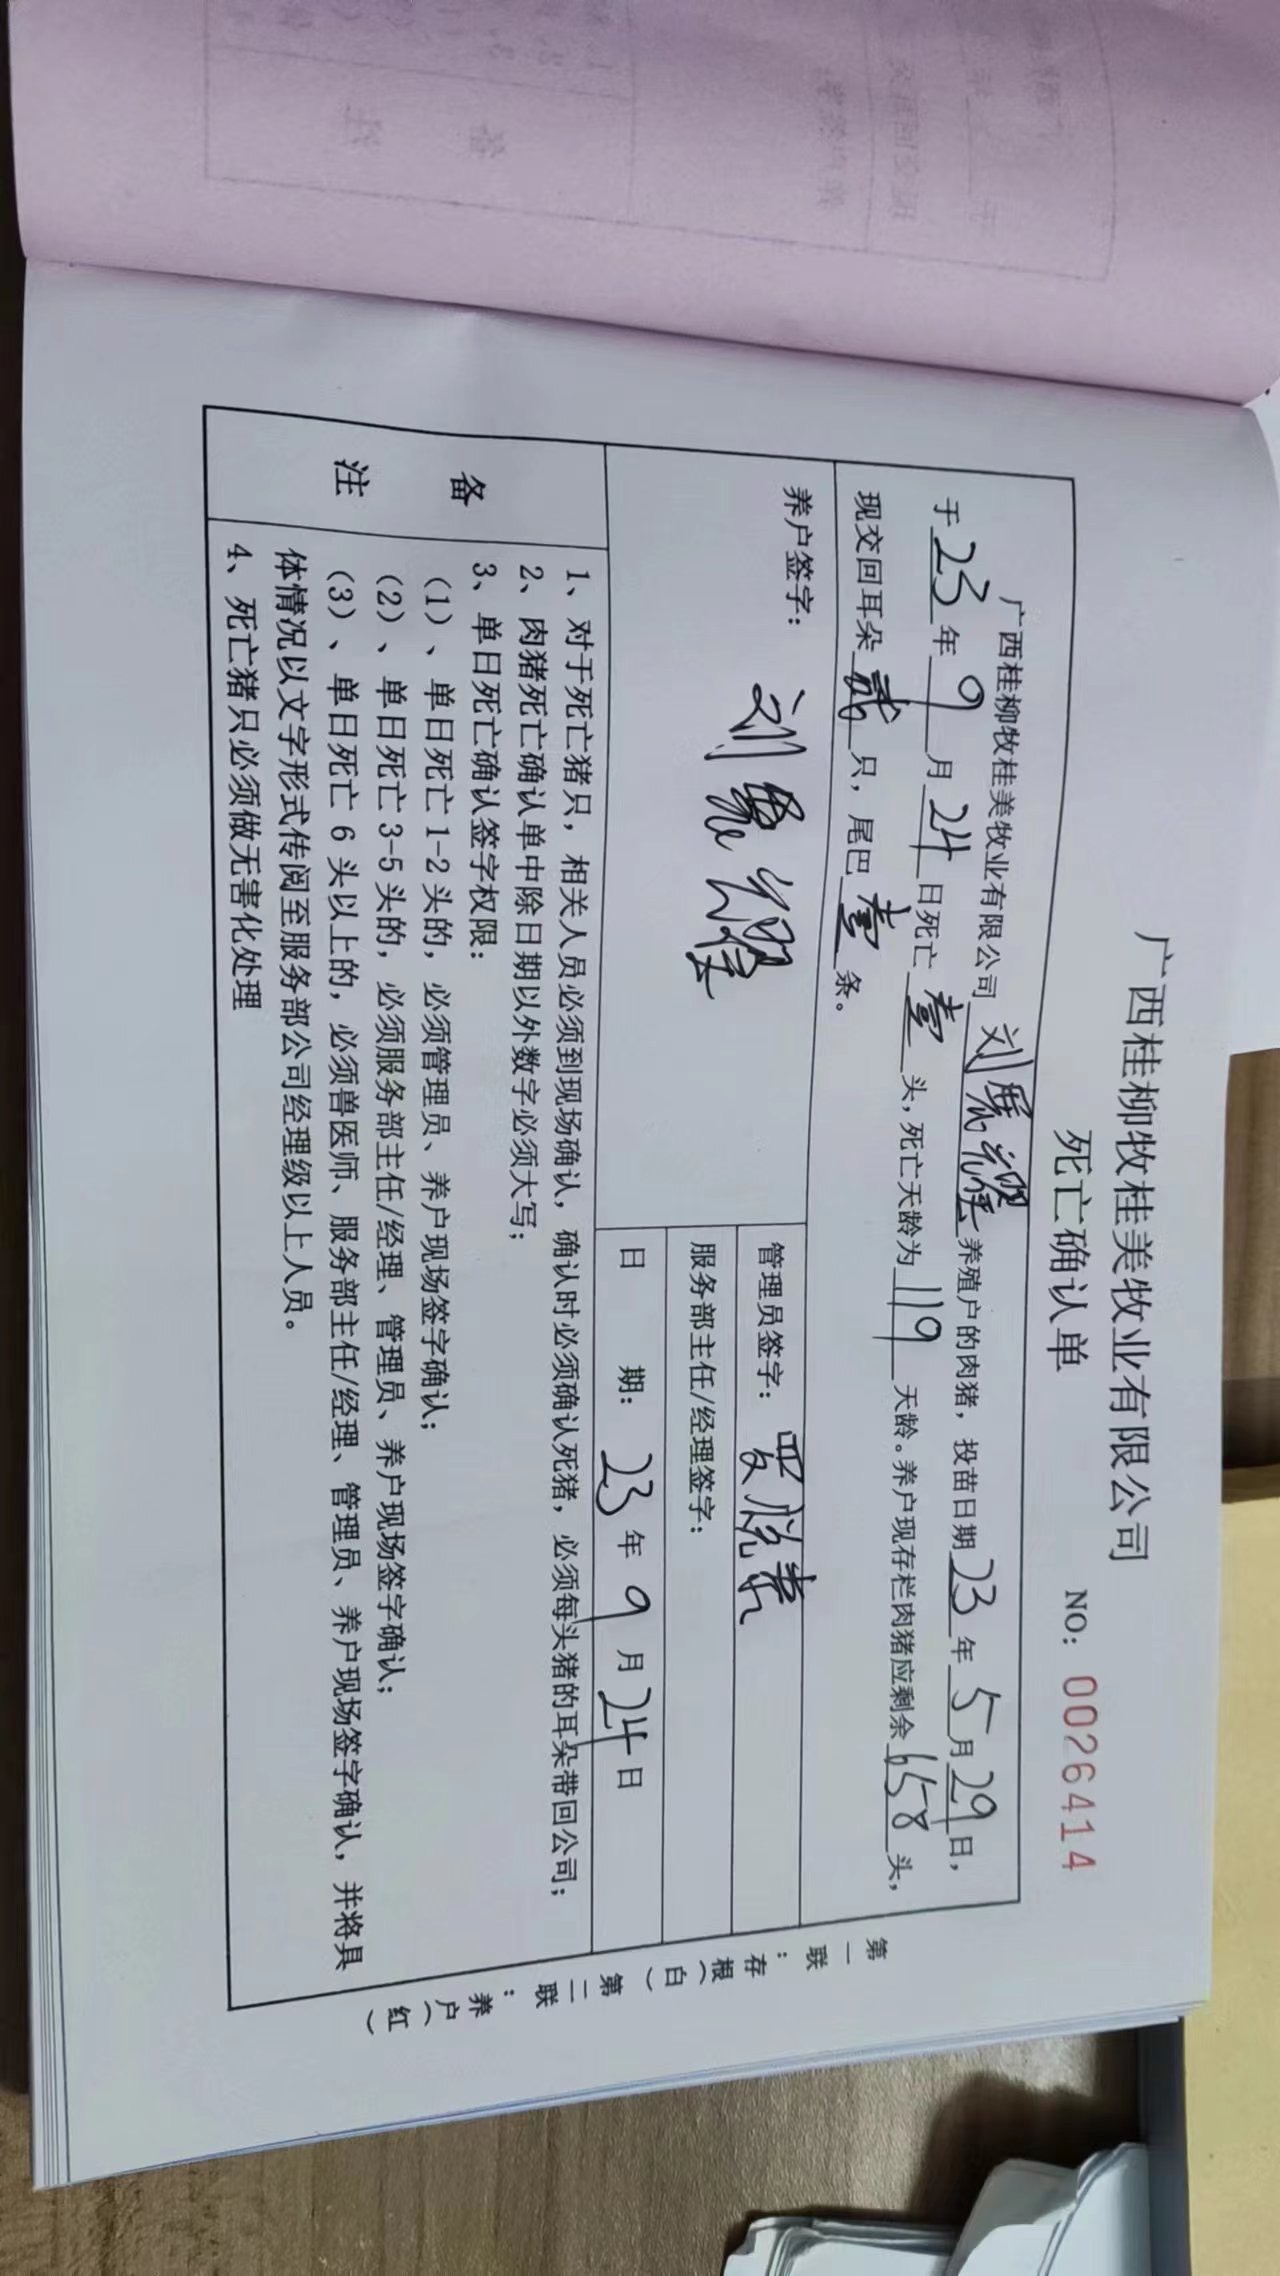 广西桂柳牧桂美牧业有限公司
死亡确认单
NO: 0026414
广西桂柳牧桂美牧业有限公司 刘展耀 养殖户的肉猪，投苗日期 23 年 5 月 29 日，
于 23 年 9 月 24 日死亡 壹 头，死亡天龄为 119 天龄。养户现存栏肉猪应剩余 658 头，
现交回耳朵 贰 只，尾巴 壹 条。
养户签字： 刘
管理员签字：
服务部主任/经理签字：
日 期： 23 年 9 月 24 日
备注
1、对于死亡猪只，相关人员必须到现场确认，确认时必须确认死猪，必须每头猪的耳朵带回公司；
2、肉猪死亡确认单中除日期以外数字必须大写；
3、单日死亡确认签字权限：
（1）、单日死亡1-2头的，必须管理员、养户现场签字确认；
（2）、单日死亡3-5头的，必须服务部主任/经理、管理员、养户现场签字确认；
（3）、单日死亡6头以上的，必须兽医师、服务部主任/经理、管理员、养户现场签字确认，并将具
体情况以文字形式传阅至服务部公司经理级以上人员。
4、死亡猪只必须做无害化处理
第一联：存根（白） 第二联：养户（红）